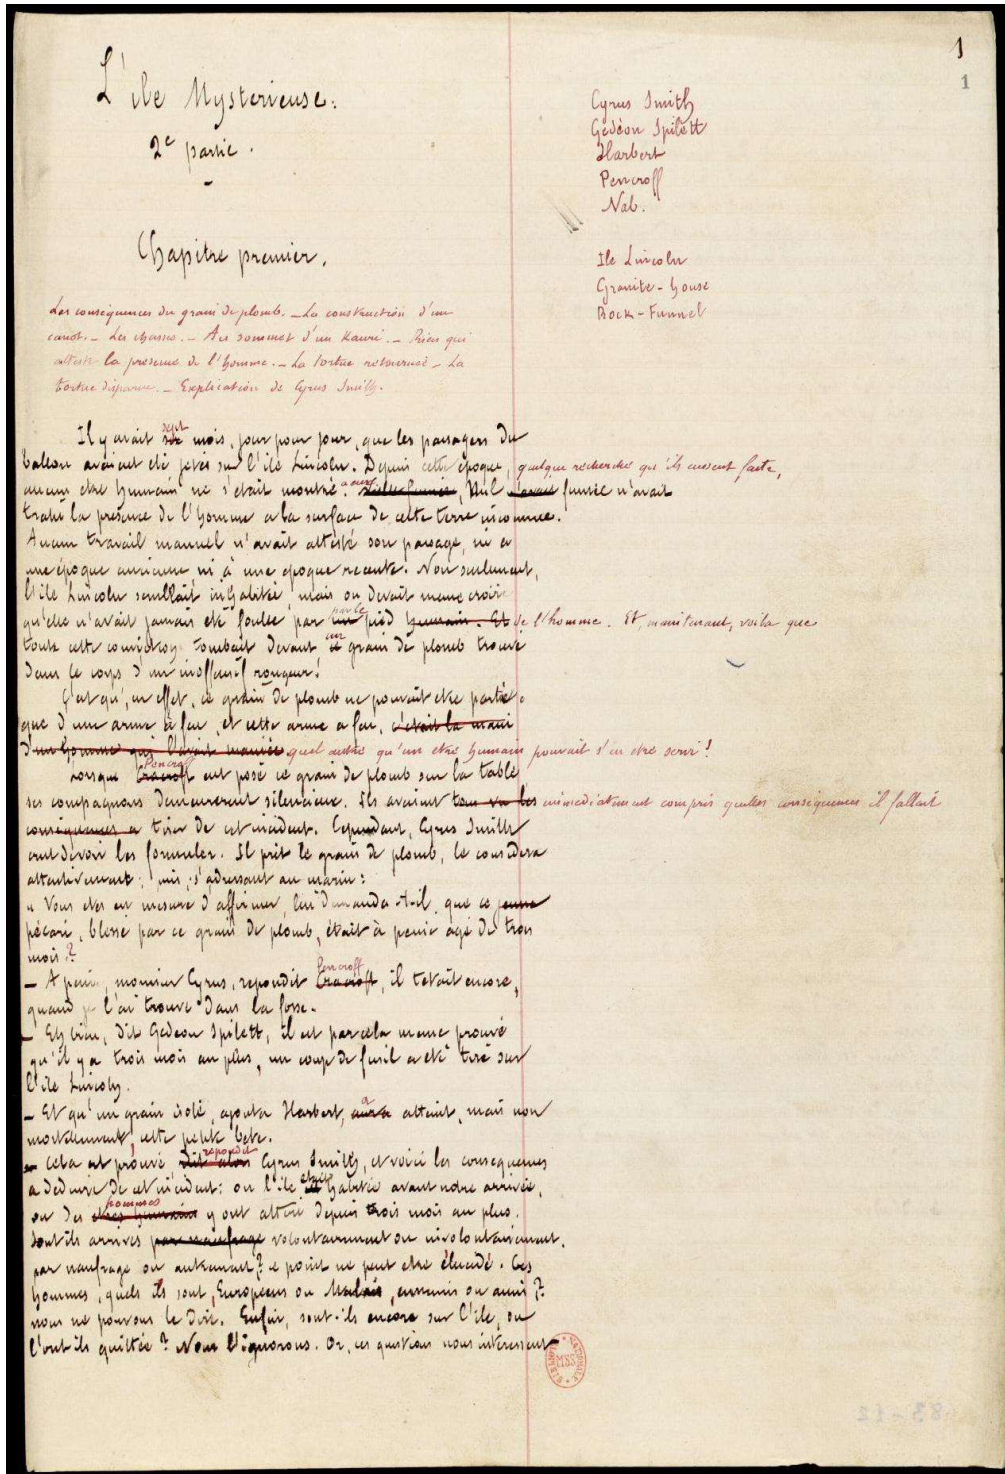 1
1
L'ile Mysterieuse.
2e partie.
Cyrus Smith
Gédéon Spilett
Harbert
Pencroff
Nab.
Ile Lincoln
Granite-house
Rock-Funnel
Chapitre premier.
Les conséquences du grain de plomb. _ La construction d'un
canot. _ Les chasses. _ Au sommet d'un Kauri. _ Rien qui
atteste la présence de l'homme. _ La tortue retournée _ La
tortue disparue. _ Explication de Cyrus Smith.
Il y avait sept mois, jour pour jour, que les passagers du
ballon avaient été jetés sur l'ile Lincoln. Depuis cette époque, quelque recherche qu'ils eussent faite,
aucun etre humain ne s'était montré. Nul fumée n'avait
trahi la présence de l'homme a la surface de cette terre inconnue.
Aucun travail manuel n'avait attesté son passage, ni a
une époque ancienne, ni à une époque recente. Non seulement,
l'ile Lincoln semblait inhabitée, mais on devait meme croire
qu'elle n'avait jamais été foulée par le pied humain. Et de l'homme. Et, maintenant, voila que
toute cette tombait devant un grain de plomb trouvé
dans le corps d'un inoffensif rongeur!
C'est qu', en effet, ce grain de plomb ne pouvait etre parti
que d'une arme à feu, et cette arme a feu, c'était la main
d'un homme qui l'avait maniée quel autre qu'un etre humain pouvait s'en etre servi!
Lorsque Pencroff eut posé ce grain de plomb sur la table
ses compagnons demeurerent silencieux. Ils avaient immédiatement compris quelles conséquences il fallait
conséquences a tirer de cet incident. Cependant, Cyrus Smith
crut devoir les formuler. Il prit le grain de plomb, le considera
attentivement; puis, s'adressant au marin:
« Vous etes en mesure d'affirmer, lui demanda-t-il, que ce jeune
pécari, blessé par ce grain de plomb, était à peine agé de trois
mois?
_ A peine, monsieur Cyrus, repondit Pencroff Cracroft, il tetait encore,
quand je l'ai trouvé dans la fosse.
_ Eh bien, dit Gédéon Spilett, il est par cela meme prouvé
qu'il y a trois mois au plus, un coup de fusil a été tiré sur
l'ile Lincoln.
_ Et qu'un grain isolé, ajouta Harbert, a atteint, mais non
mortellement, cette petite bete.
_ Cela est prouvé, répondit dit alors Cyrus Smith, et voici les consequences
a déduire de cet incident: ou l'ile était habitée avant notre arrivée,
ou des hommes etres humains y ont atterri depuis trois mois au plus.
Sont ils arrivés par naufrage volontairement ou involontairement,
par naufrage ou autrement? ce point ne peut etre élucidé. Ces
hommes, quels ils sont, Européens ou Malais, ennemis ou amis?
nous ne pouvons le dire. Enfin, sont-ils encore sur l'ile, ou
l'ont ils quittée? Nous l'ignorons. Or, ces questions nous intéressent